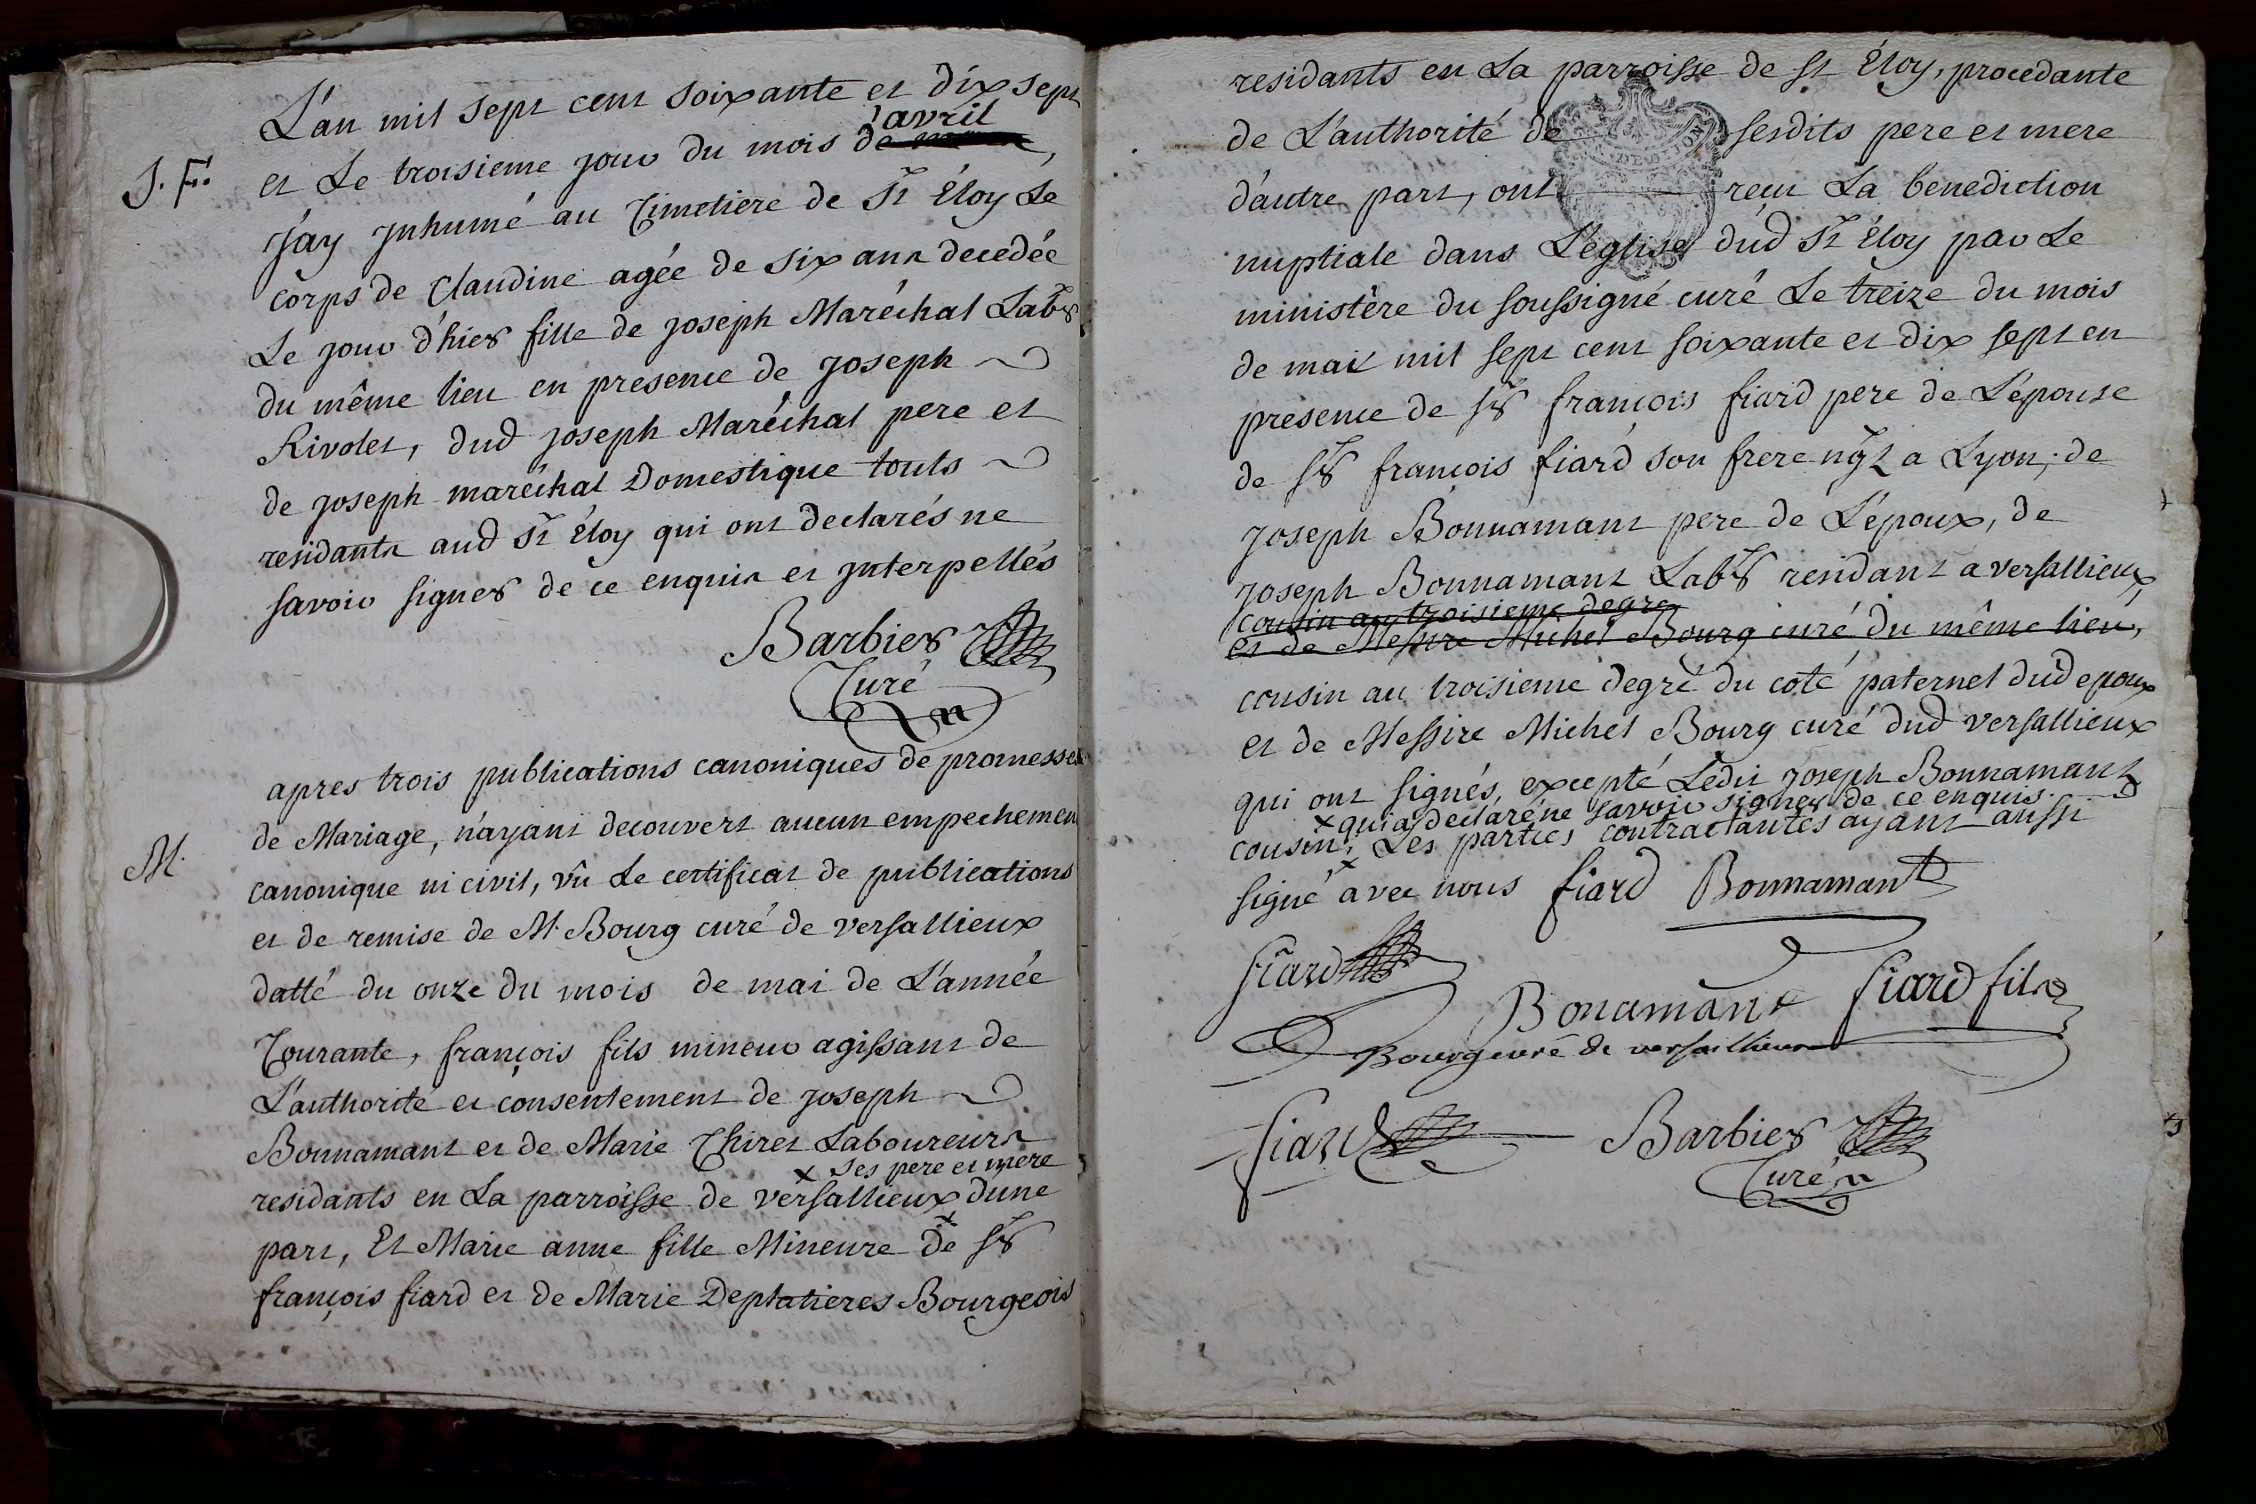 L'an mil sept cent soixante et dix sept
J. F. et Le troisieme jour du mois d'avril
jay jnhumé au Cimetiere de St Éloy Le
corps de Claudine agée de six ans decedée
Le jour d'hier fille de joseph Maréchal Labr
du même lieu en presence de joseph
Rivolet, dud joseph Maréchal pere et
de joseph maréchal Domestique touts
residants aud St Éloy qui ont declarés ne
savoir signer de ce enquis et jnterpellés
Barbier
Curé
apres trois publications canoniques de promesses
de Mariage, n'ayant decouvert aucun empechement
M. canonique ni civil, vû Le certificat de publications
et de remise de M. Bourg curé de versallieux
datté du onze du mois de mai de L'année
Courante, françois fils mineur agissant de
L'authorité et consentement de joseph
Bonnamant et de Marie Thiret Laboureurs
x ses pere et mere
residants en La parroisse de versallieux x d'une
part, Et Marie anne fille Mineure de sr
françois fiard et de Marie Deplatieres Bourgeois
residants en La parroisse de St Éloy, procedante
de L'authorité de sesdits pere et mere
d'autre part, ont reçu La benediction
nuptiale dans L'église dud St Éloy par Le
ministère du soussigné curé Le treize du mois
de mai mil sept cent soixante et dix sept en
presence de sr françois fiard pere de L'épouse
de sr françois fiard son frere ngt a Lyon, de
joseph Bonnamant pere de L'époux, de
joseph Bonnamant Labr residant a versallieux,
cousin au troisieme degre
et de Messire Michel Bourg curé du même lieu,
cousin au troisieme degré du coté paternel dud epoux
et de Messire Michel Bourg curé dud versallieux
qui ont signés, excepté Ledit joseph Bonnamant
x qui a declaré ne savoir signer de ce enquis.
cousin, x Les parties contractantes ayant aussi
signé avec nous fiard Bonnamant
fiard
Bonamant fiard fils
Bourg curé de versaillieux
fiard Barbier
Curé